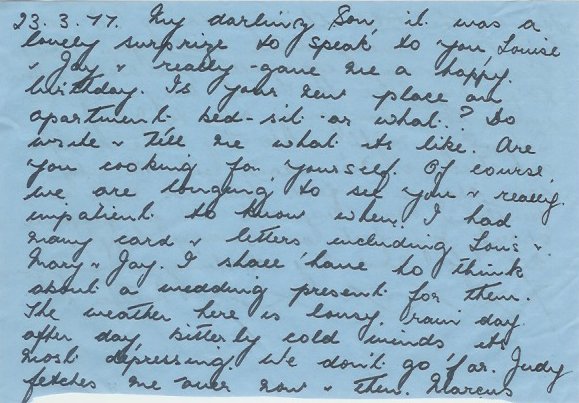 23.3.77. My darling Son, it was a
lovely surprize to speak to you, Louise
& Jay & really gave me a happy
birthday. Is your new place an
apartment bed-sit or what? Do
write & tell me what its like. Are
you cooking for yourself. Of course,
we are longing to see you & really
impatient to know when. I had
many card & letters including Louis &
Mary & Jay. I shall have to think
about a wedding present for them.
The weather here is lousy, rain day
after day, bitterly cold winds its
most depressing. We don't go far. Judy
fetches me over now & then. Marcus